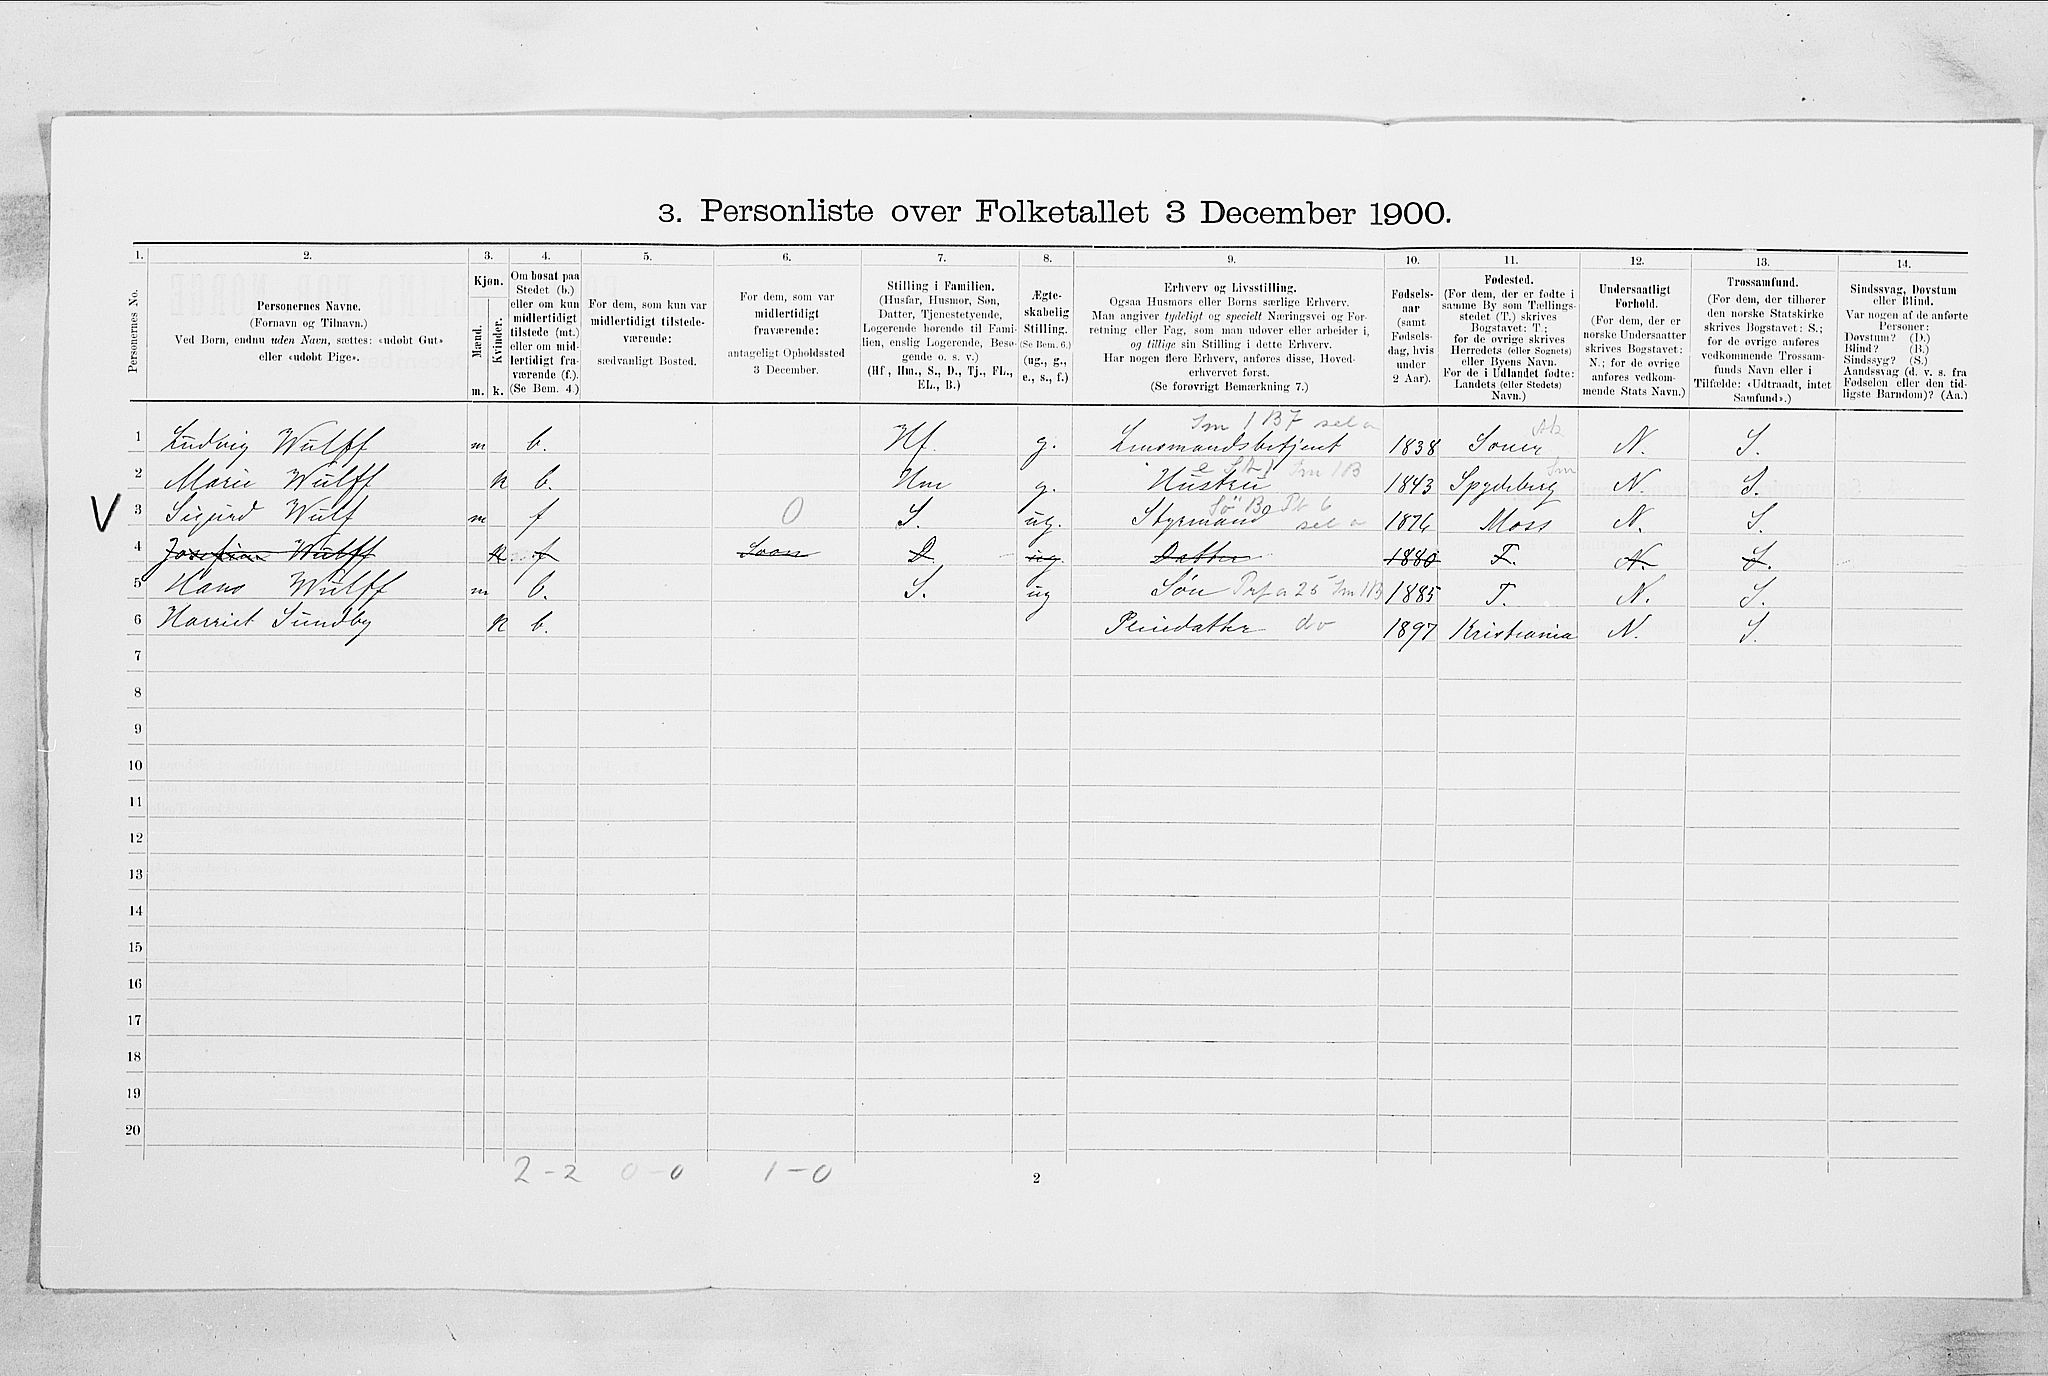 3. Personliste over Folketallet 3 December 1900.
1. 2. 3. 4. 5. 6. 7. 8. 9. 10. 11. 12. 13. 14.
Personernes No.
Personernes Navne.
(Fornavn og Tilnavn.)
Ved Børn, endnu uden Navn, sættes: «udøbt Gut»
eller «udøbt Pige».
Kjøn.
Mænd.
Kvinder.
m. k.
Om bosat paa
Stedet (b.)
eller om kun
midlertidigt
tilstede (mt.)
eller om mid-
lertidigt fra-
værende (f.).
(Se Bem. 4.)
For dem, som kun var
midlertidigt tilstede-
værende:
sædvanligt Bosted.
For dem, som var
midlertidigt
fraværende:
antageligt Opholdssted
3 December.
Stilling i Familien.
(Husfar, Husmor, Søn,
Datter, Tjenestetyende,
Logerende hørende til Fami-
lien, enslig Logerende, Besø-
gende o. s. v.)
(Hf., Hm., S., D., Tj., FL.,
EL., B.)
Ægte-
skabelig
Stilling.
(Se Bem. 6.)
(ug., g.,
e., s., f.)
Erhverv og Livsstilling.
Ogsaa Husmors eller Børns særlige Erhverv.
Man angiver tydeligt og specielt Næringsvei og For-
retning eller Fag, som man udøver eller arbeider i,
og tillige sin Stilling i dette Erhverv.
Har nogen flere Erhverv, anføres disse, Hoved-
erhvervet først.
(Se forøvrigt Bemærkning 7.)
Fødsels-
aar
(samt
Fødsels-
dag, hvis
under
2 Aar).
Fødested.
(For dem, der er fødte i
samme By som Tællings-
stedet (T.) skrives
Bogstavet: T.;
for de øvrige skrives
Herredets (eller Sognets)
eller Byens Navn.
For de i Udlandet fødte:
Landets (eller Stedets)
Navn.)
Undersaatligt
Forhold.
(For dem, der er
norske Undersaatter
skrives Bogstavet:
N.; for de øvrige
anføres vedkom-
mende Stats Navn.)
Trossamfund.
(For dem, der tilhører
den norske Statskirke
skrives Bogstavet: S.;
for de øvrige anføres
vedkommende Trossam-
funds Navn eller i
Tilfælde: «Udtraadt, intet
Samfund».)
Sindssvag, Døvstum
eller Blind.
Var nogen af de anførte
Personer:
Døvstum? (D.)
Blind? (B.)
Sindssyg? (S.)
Aandssvag (d. v. s. fra
Fødselen eller den tid-
ligste Barndom)? (Aa.)
1 Ludvig Wulff m b. Hf. g. Lensmandsbetjent 1838 Soner N. S.
2 Marie Wulff k b. Hm g. Hustru 1843 Spydeberg N. S.
V 3 Sigurd Wulf m f 0 S. ug. Styrmand 1876 Moss N. S.
4 Josefine Wulff k f Soon D ug. Datter 1880 T. N. S.
5 Hans Wulff m b. S. ug Søn 1885 T. N. S.
6 Harriet Sundby k b. Pleiedatter do 1897 Kristiania N. S.
7
8
9
10
11
12
13
14
15
16
17
18
19
20
2-2 0-0 1-0
2